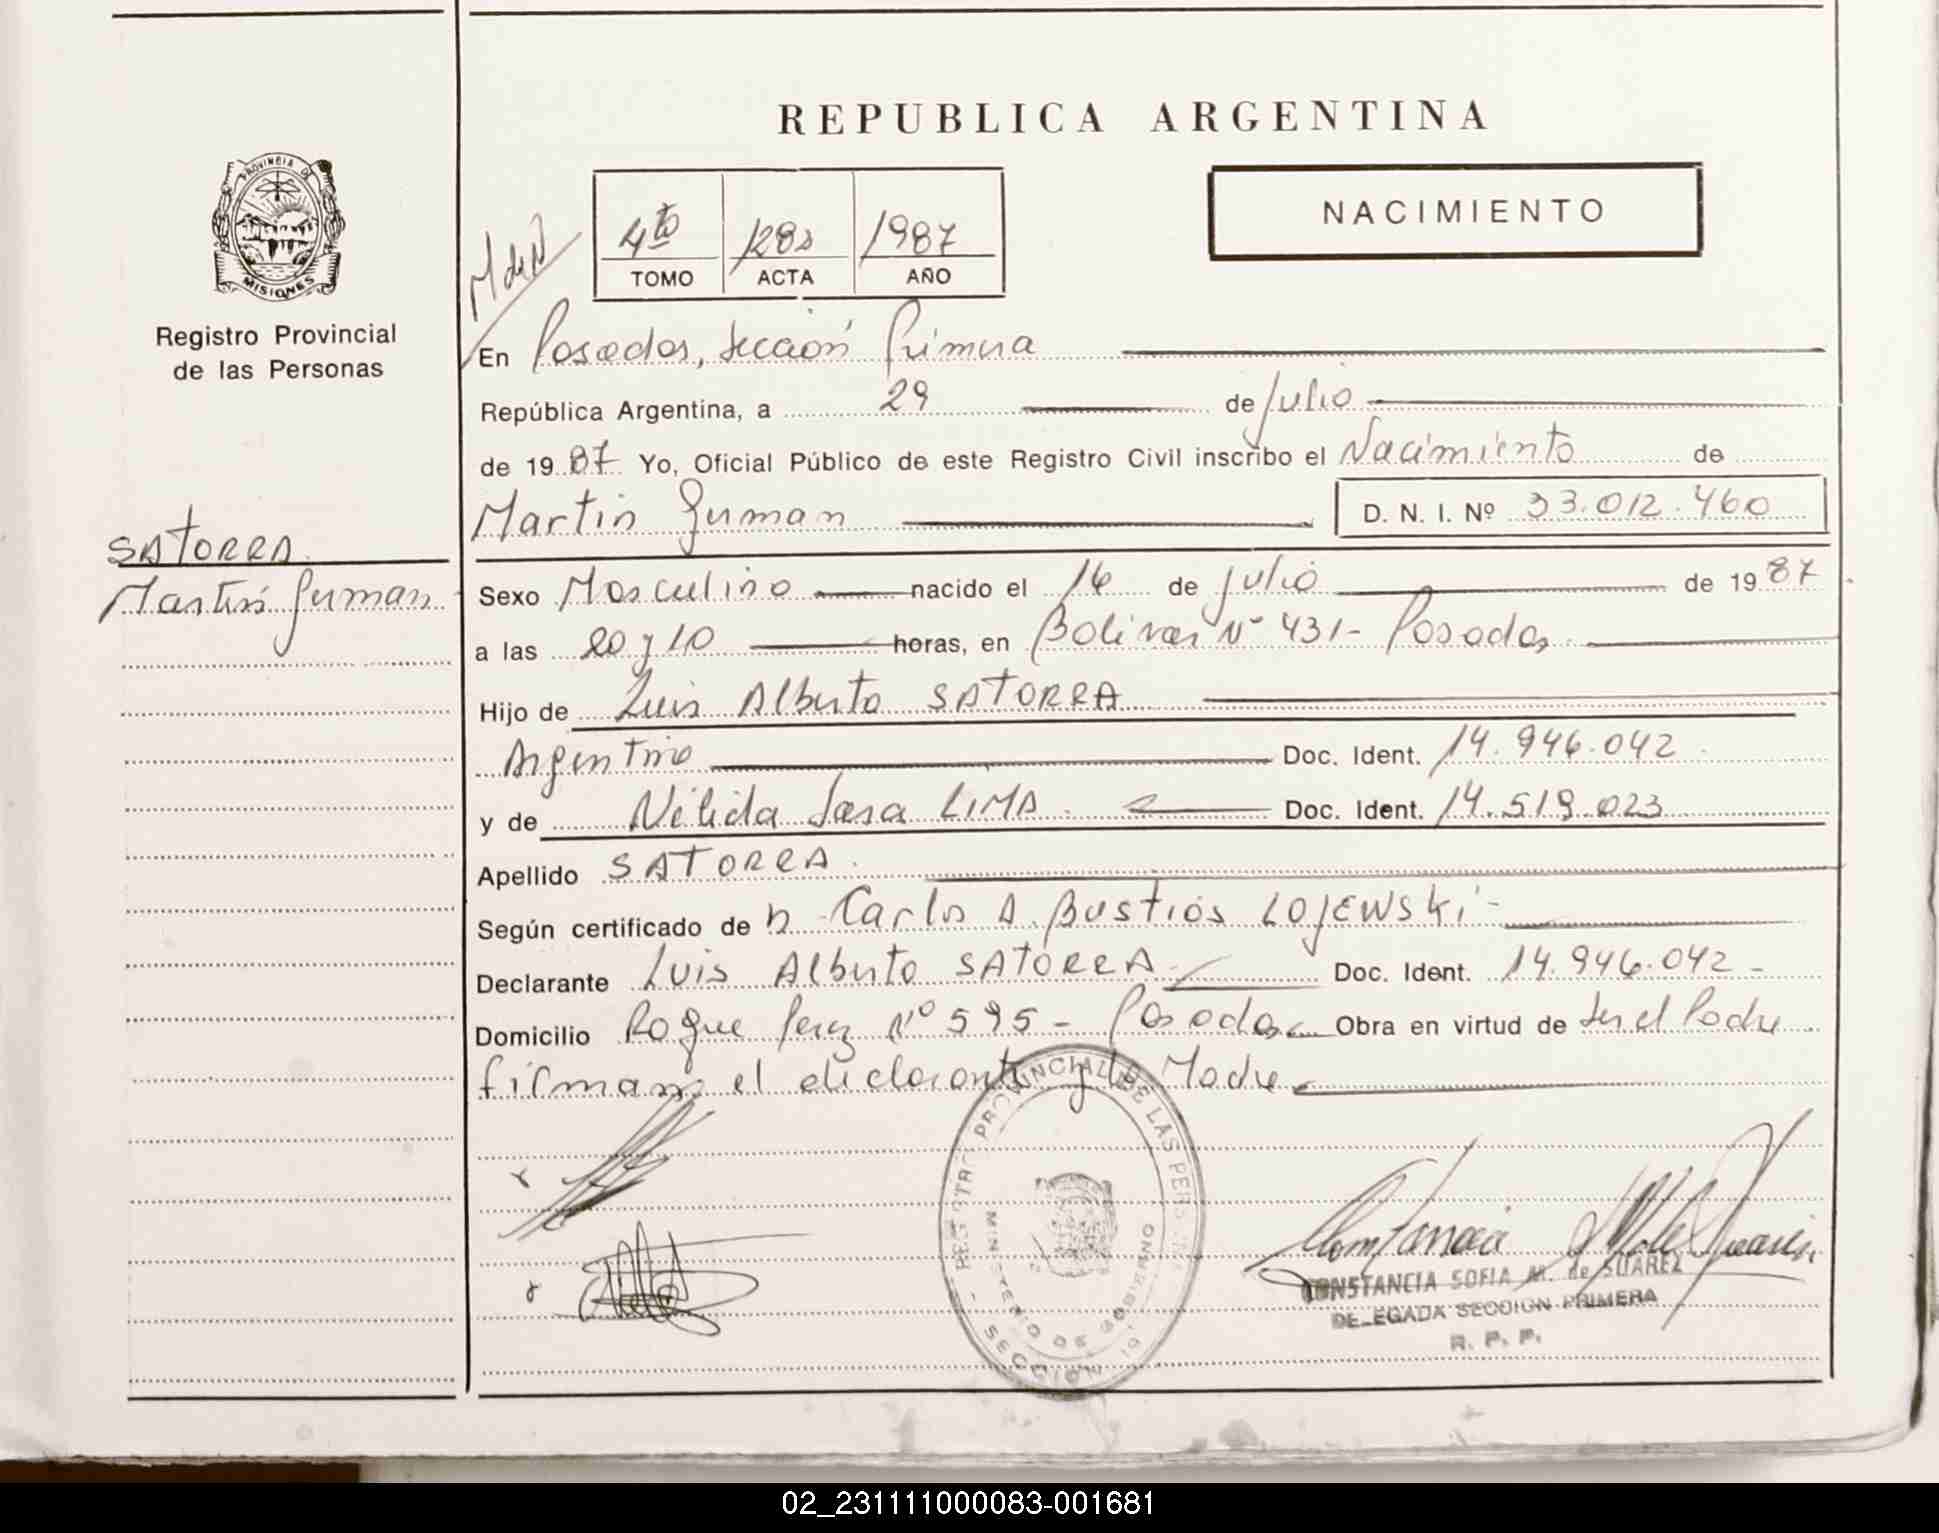 REPUBLICA ARGENTINA
PROVINCIA DE
MISIONES
Registro Provincial
de las Personas
NACIMIENTO
M de N
4to 128 1987
TOMO ACTA AÑO
En Posadas, Sección Primera
República Argentina, a 29 de Julio
de 1987 Yo, Oficial Público de este Registro Civil inscribo el Nacimiento de
Martin German D. N. I. Nº 33.012.460
SATORRA
Martin German
Sexo Masculino nacido el 16 de Julio de 1987
a las 20 y 10 horas, en Bolivar Nº 431- Posadas
Hijo de Luis Alberto SATORRA
Argentino Doc. Ident. 14.946.042
y de Nélida Sara LIMA Doc. Ident. 14.519.023
Apellido SATORRA
Según certificado de Carlos A. Bustios LOJEWSKI-
Declarante Luis Alberto SATORRA Doc. Ident. 14.946.042-
Domicilio Roque Perez Nº 595- Posadas Obra en virtud de ser el Padre
firman el declarante y la Madre
REGISTRO PROVINCIAL DE LAS PERS
MINISTERIO DE GOBIERNO
SECCION 1ª
CONSTANCIA SOFIA M. de SUAREZ
DELEGADA SECCION PRIMERA
R. P. P.
02_231111000083-001681